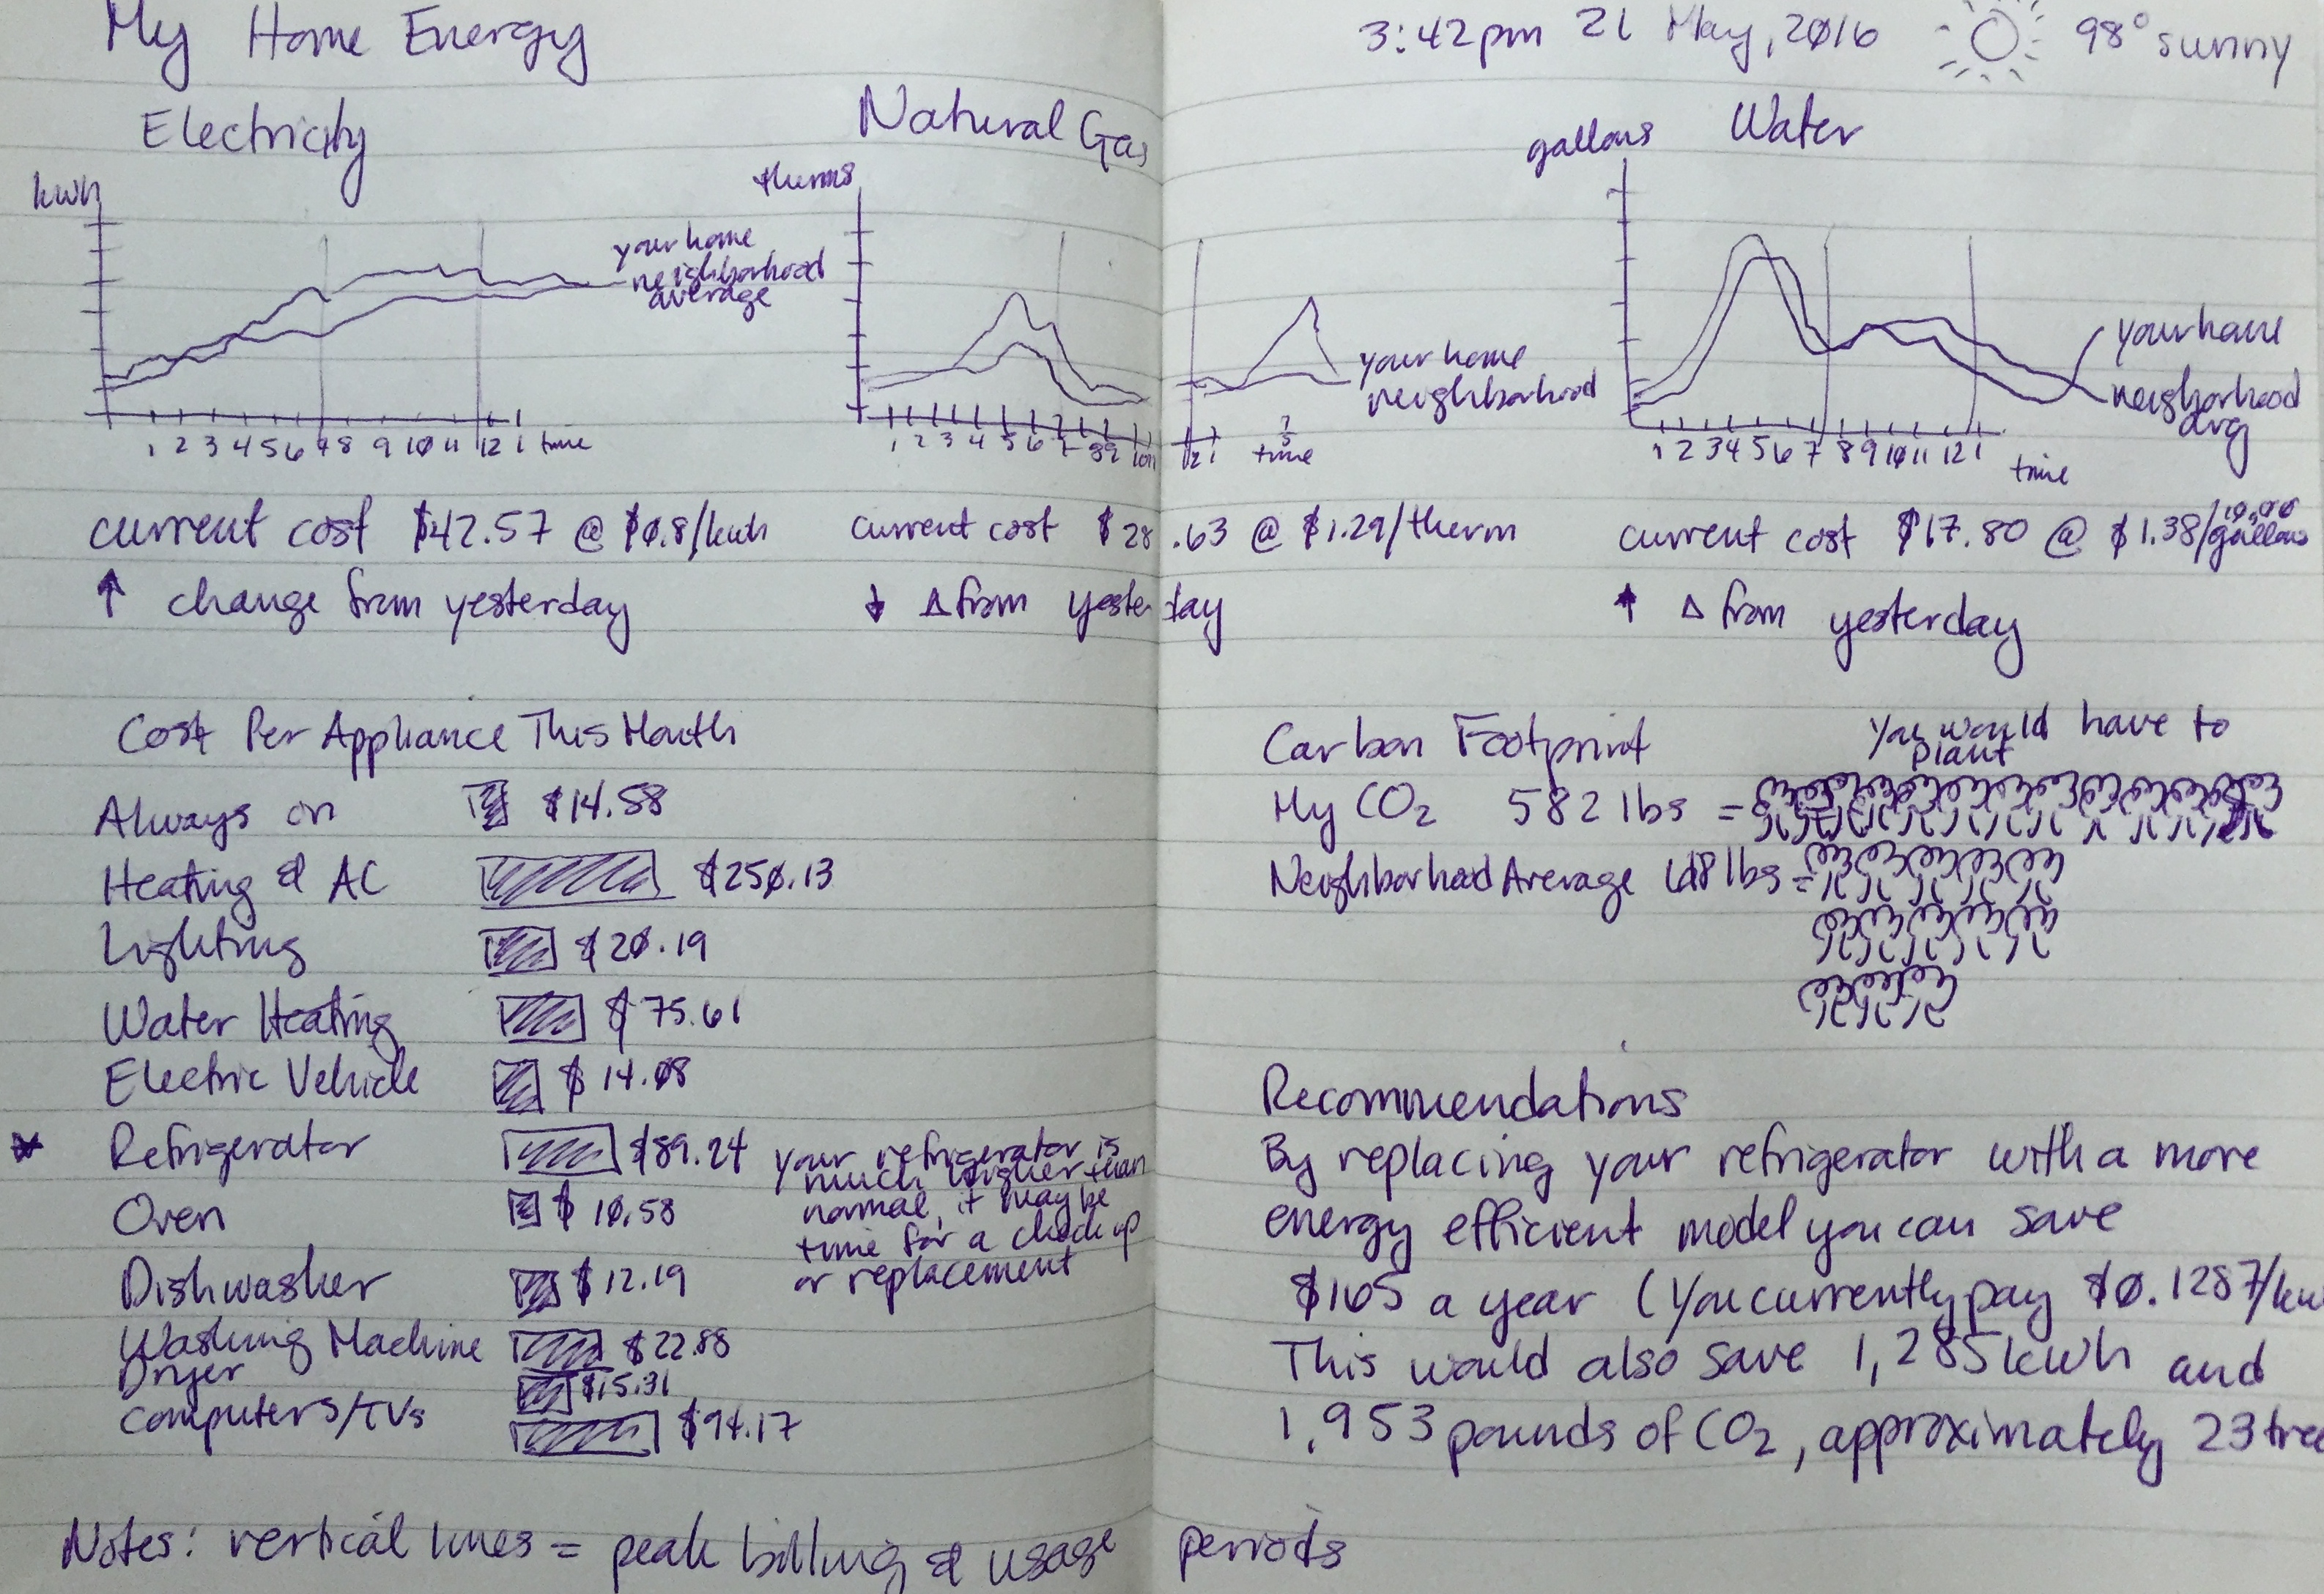 My Home Energy
3:42pm 21 May, 2016
98° sunny
Electricity
kwh
your home
neighborhood
average
1 2 3 4 5 6 7 8 9 10 11 12 1 time
current cost $42.57 @ $0.8/kwh
↑ change from yesterday
Natural Gas
therms
your home
neighborhood
1 2 3 4 5 6 7 8 9 10 11 12 1
time
current cost $28.63 @ $1.29/therm
↓ Δ from yesterday
Water
gallons
your home
neighborhood
avg
1 2 3 4 5 6 7 8 9 10 11 12 1 time
current cost $17.80 @ $1.38/
gallons
↑ Δ from yesterday
Cost Per Appliance This Month
Always on $14.58
Heating & AC $250.13
Lighting $20.19
Water Heating $75.61
Electric Vehicle $14.08
Refrigerator $89.24
your refrigerator is
much higher than
normal, it may be
time for a check up
or replacement
Oven $10.58
Dishwasher $12.19
Washing Machine $22.88
Dryer $15.31
Computers/TVs $94.17
Carbon Footprint
You would have to
plant
My CO2 582 lbs =
Neighborhood Average lbs =
Recommendations
By replacing your refrigerator with a more
energy efficient model you can save
$165 a year (You currently pay $0.1287/kw
This would also save 1,285 kwh and
1,953 pounds of CO2, approximately 23 tree
Notes: vertical lines = peak billing & usage periods